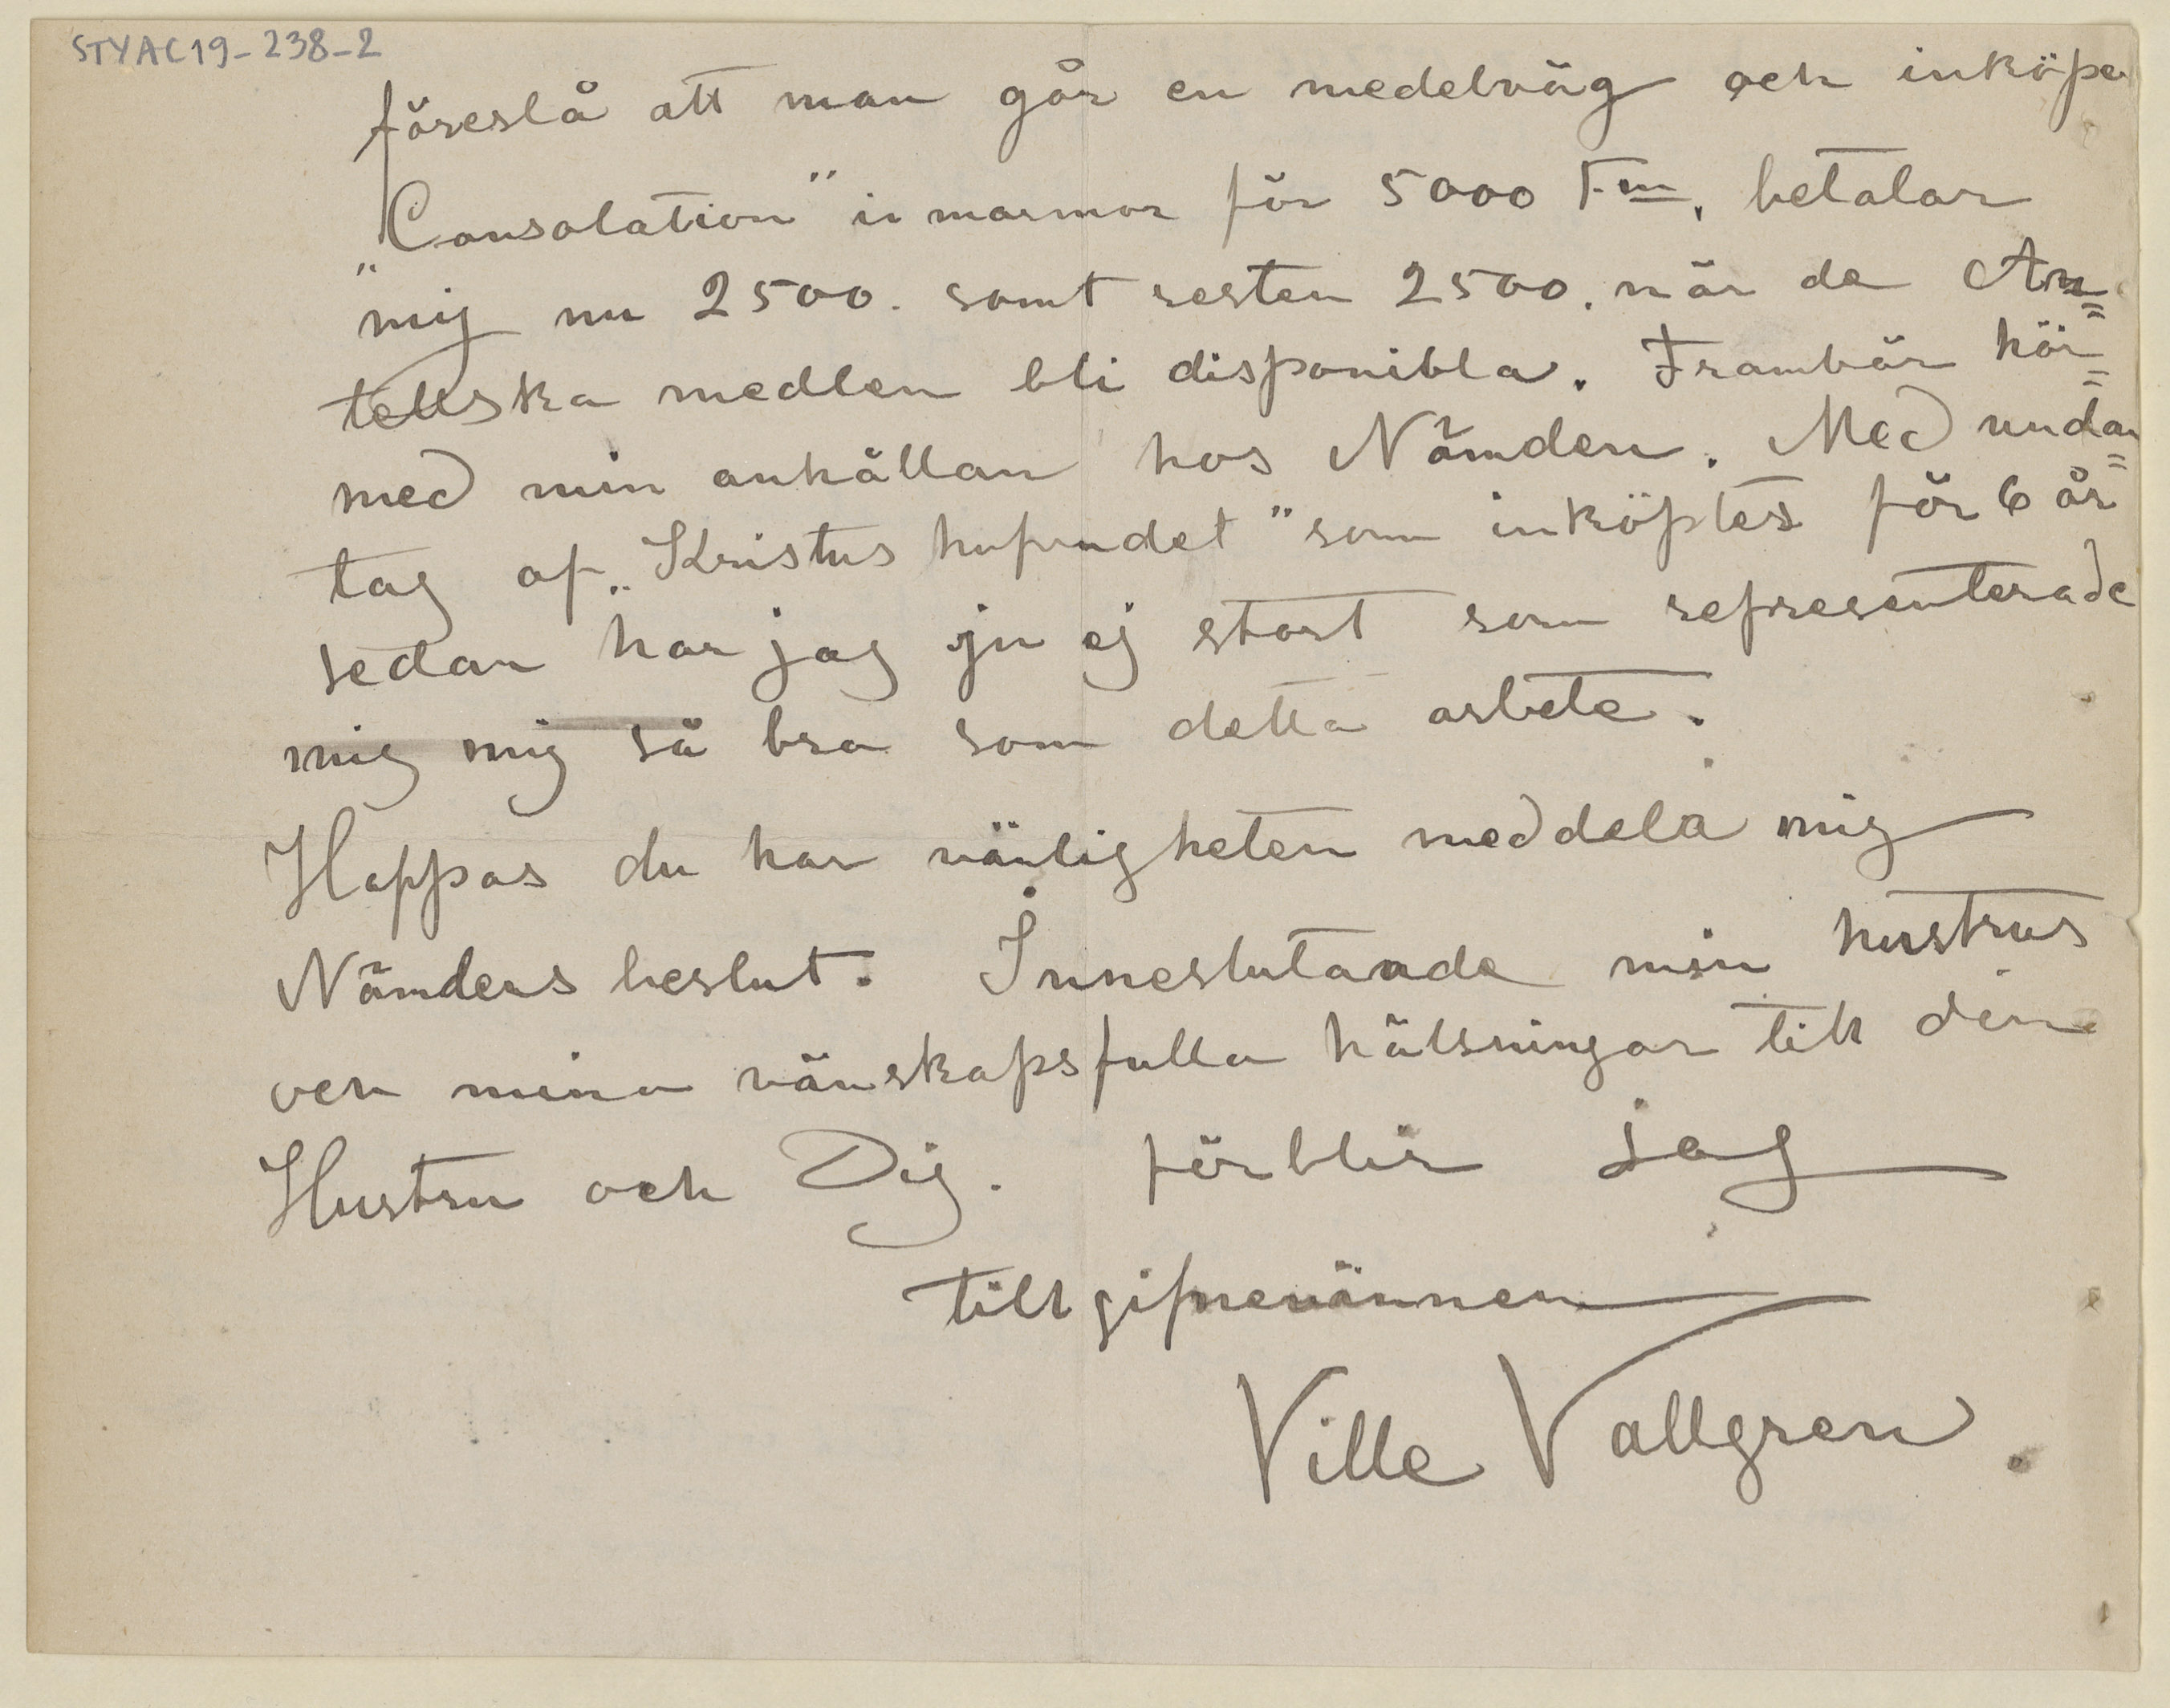 STYAC19-238-2
föreslå att man går en medelväg och inköper
„Consolation" i marmor för 5000 Fm, betalar
mig nu 2500. samt resten 2500. när de An=
tellska medlen bli disponibla. Frambär här=
med min anhållan hos Nämden. Med undan=
tag af „Kristus hufvudet" som inköptes för 6 år
sedan har jag ju ej stort som representerade
mig mig så bra som detta arbete.
Hoppas du har vänligheten meddela mig
Nämdens beslut. Inneslutande min hustrus
och mina vänskapsfulla hälsningar till din
Hustru och Dig. förblir jag
tillgifnevännen
Ville Vallgren.